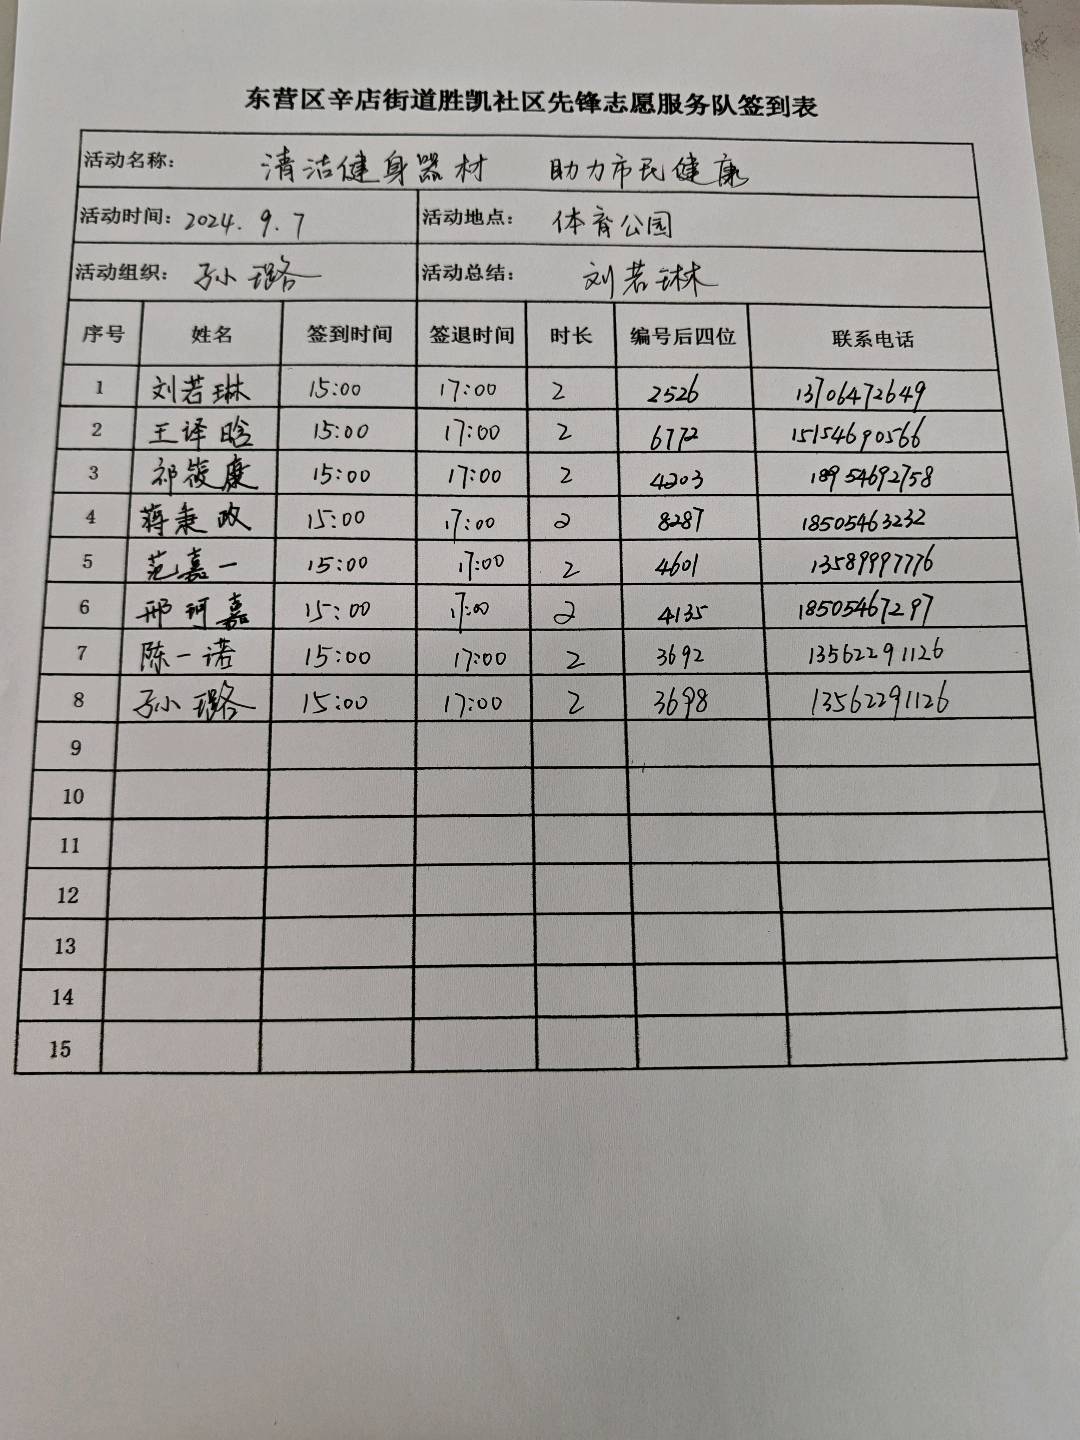 东营区辛店街道胜凯社区先锋志愿服务队签到表
活动名称： 清洁健身器材 助力市民健康
活动时间：2024.9.7 活动地点： 体育公园
活动组织： 孙璐 活动总结： 刘若琳
序号 姓名 签到时间 签退时间 时长 编号后四位 联系电话
1 刘若琳 15:00 17:00 2 2526 13706472649
2 王译晗 15:00 17:00 2 6772 15154690566
3 祁筱康 15:00 17:00 2 4203 18954692758
4 蒋秉政 15:00 17:00 2 8287 18505463232
5 范嘉一 15:00 17:00 2 4601 13589997776
6 邢珂嘉 15:00 17:00 2 4135 18505467297
7 陈一诺 15:00 17:00 2 3692 13562291126
8 孙璐 15:00 17:00 2 3698 13562291126
9
10
11
12
13
14
15